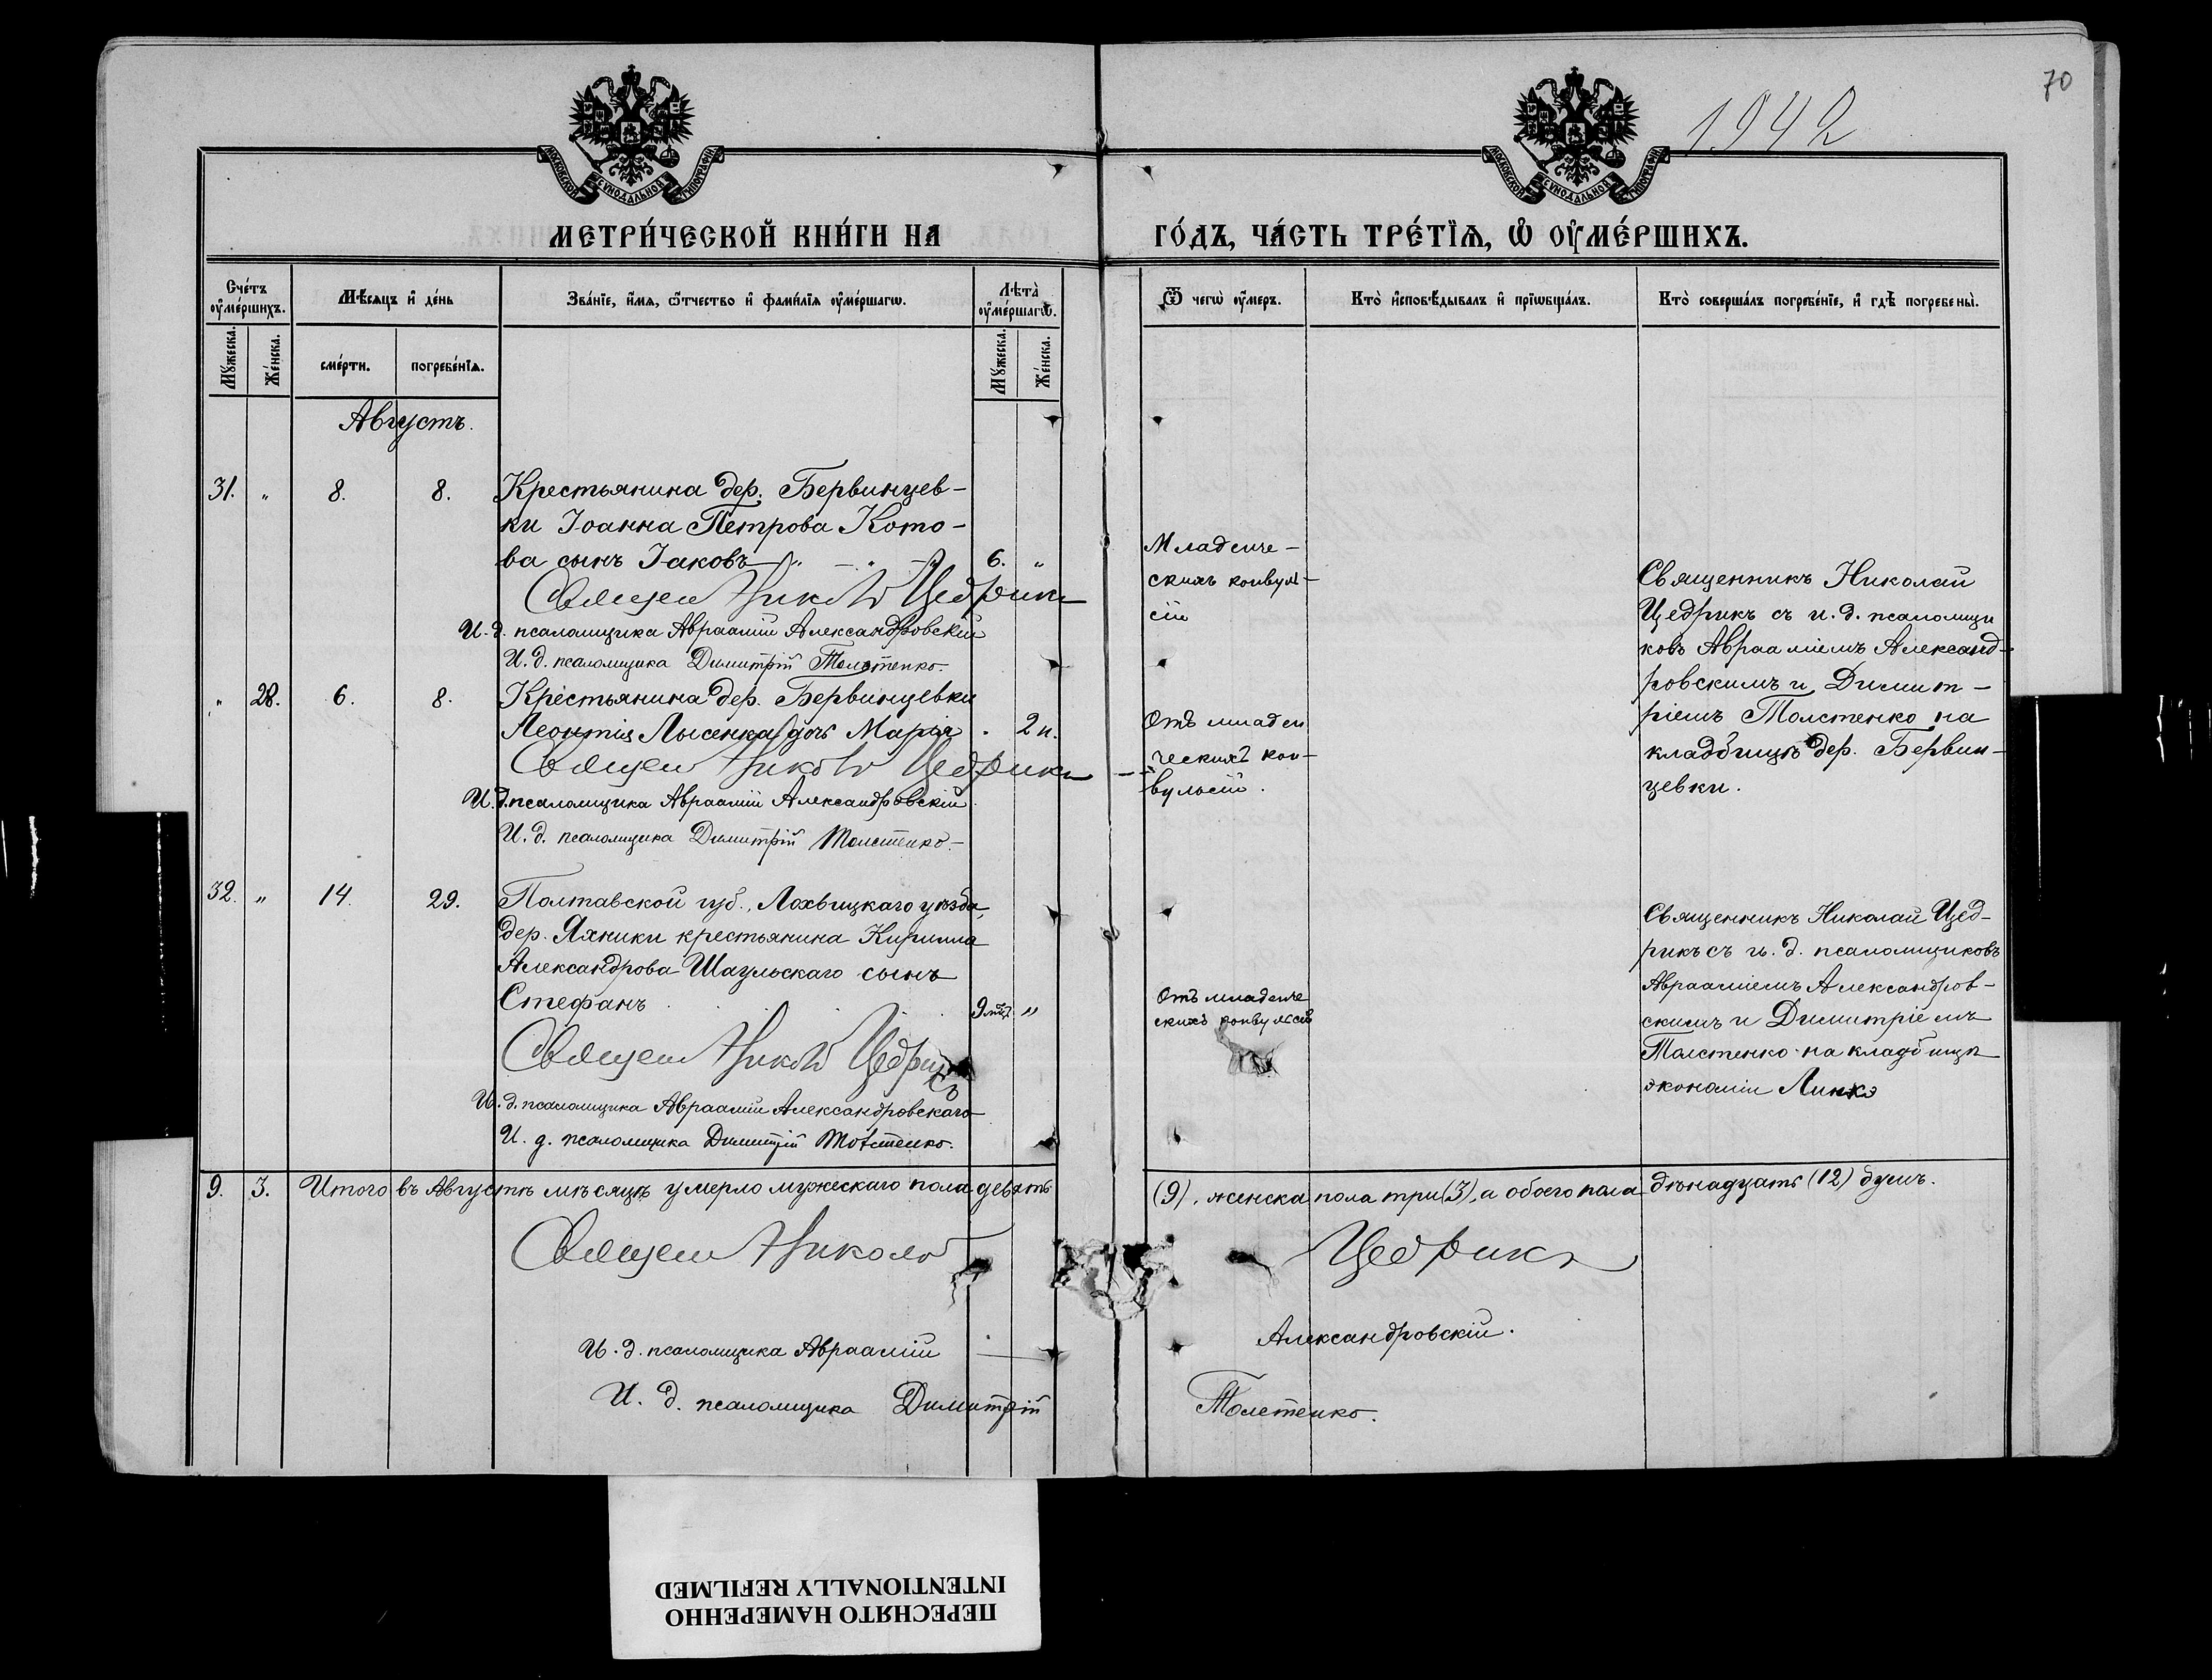 70
1942
МОСКОВСКОЙ СѴНОДАЛЬНОЙ ТИПОГРАФІИ
МОСКОВСКОЙ СѴНОДАЛЬНОЙ ТИПОГРАФІИ
МЕТРИ́ЧЕСКОЙ КНИ́ГИ НА
ГО́ДЪ, ЧА́СТЬ ТРЕ́ТЇѦ, Ѽ ОУ҆МЕ́РШИХЪ.
Сче́тъ оу҆ме́ршихъ.
Мѣ́сяцъ и҆ де́нь
Зва́нїе, и҆́мѧ, ѻ҆́тчество и҆ фами́лїѧ оу҆ме́ршагѡ.
Лѣта̀ оу҆ме́ршагѡ.
Ѿ чегѡ̀ оу҆́меръ.
Кто̀ и҆сповѣ́дывалъ и҆ прїѡбща́лъ.
Кто̀ соверша́лъ погребе́нїе, и҆ гдѣ̀ погребены̀.
Мꙋ́жеска.
Же́нска.
сме́рти.
погребе́нїѧ.
Мꙋ́жеска.
Же́нска.
Августъ.
31. " 8. 8. Крестьянина дер. Бервинцев-
ки Іоанна Петрова Кото-
ва сынъ Іаковъ 6. "
Священ Никол Цедрикъ
И. д. псаломщика Авраамій Александровскій
И. д. псаломщика Димитрій Толстенко.
Младенче-
скихъ конвуль-
сій
Священникъ Николай
Цедрикъ съ и. д. псаломщи
ковъ Авраамiемъ Александ-
ровскимъ и Димит-
ріемъ Толстенко на
кладбищѣ дер. Бервин-
цевки.
" 28. 6. 8. Крестьянина дер. Бервинцевки
Леонтія Лысенка дочь Марія . 2 н.
Священ Никол Цедрикъ
И. д. псаломщика Авраамій Александровскій
И. д. псаломщика Димитрій Толстенко.
Отъ младен
ческихъ кон-
вульсій.
32. " 14. 29. Полтавской губ., Лохвицкаго уѣзда,
дер. Яхники крестьянина Кирилла
Александрова Шаульскаго сынъ
Стефанъ 9 мѣс. "
Священ Никол Цедрикъ
И. д. псаломщика Авраамій Александровскаго
И. д. псаломщика Димитрій Толстенко.
Отъ младенче
скихъ конвульсій
Священникъ Николай Цед-
рикъ съ и. д. псаломщиковъ
Авраамiемъ Александров-
скимъ и Димитріемъ
Толстенко на кладбищѣ
экономіи Линкэ
9. 3. Итого въ Августѣ мѣсяцѣ умерло мужескаго пола девять (9), женска пола три (3), а обоего пола двѣнадцать (12) душъ.
Священ Николай Цедрикъ
И. д. псаломщика Авраамій Александровскій.
И. д. псаломщика Димитрій Толстенко.
ПЕРЕСНЯТО НАМЕРЕННО
INTENTIONALLY REFILMED